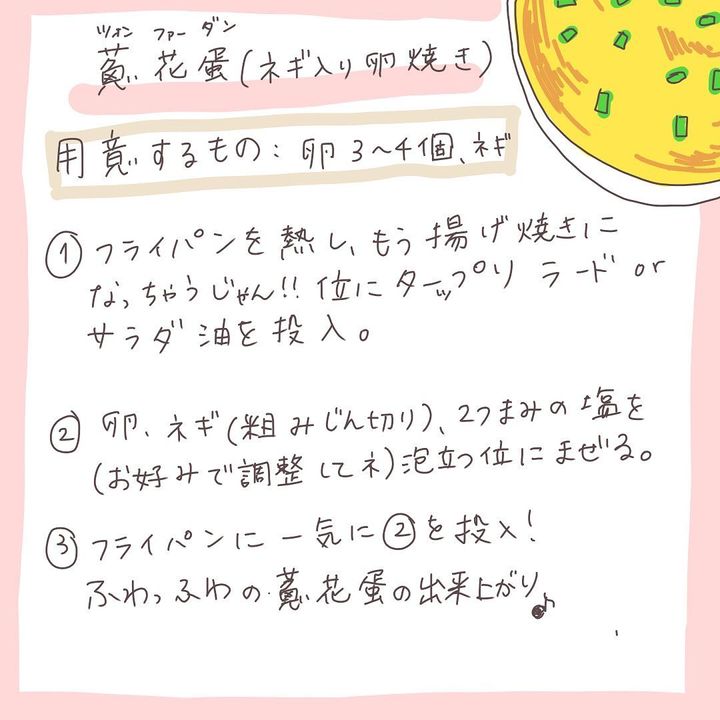 ツォン ファー ダン
蔥花蛋(ネギ入り卵焼き)
用意するもの: 卵3〜4個、ネギ
① フライパンを熱し、もう揚げ焼きに
なっちゃうじゃん!! 位にタップリ ラード or
サラダ油を投入。
② 卵、ネギ(粗みじん切り)、2つまみの塩を
(お好みで調整してネ)泡立つ位にまぜる。
③ フライパンに一気に②を投入!
ふわっふわの蔥花蛋の出来上がり♪